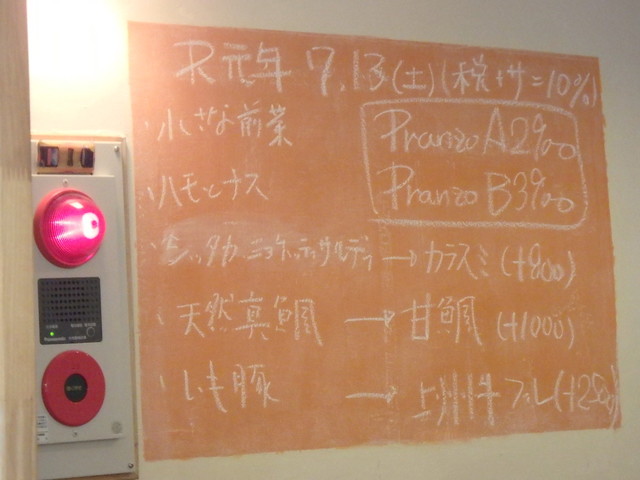 R元年 7.13(土)(税+サ=10%)
・小さな前菜
Pranzo A 2900
Pranzo B 3900
・ハモとナス
・シッタカ ニョケッティサルディ → カラスミ (+800)
・天然真鯛 → 甘鯛 (+1000)
・いも豚 → 上州牛フィレ
Panasonic